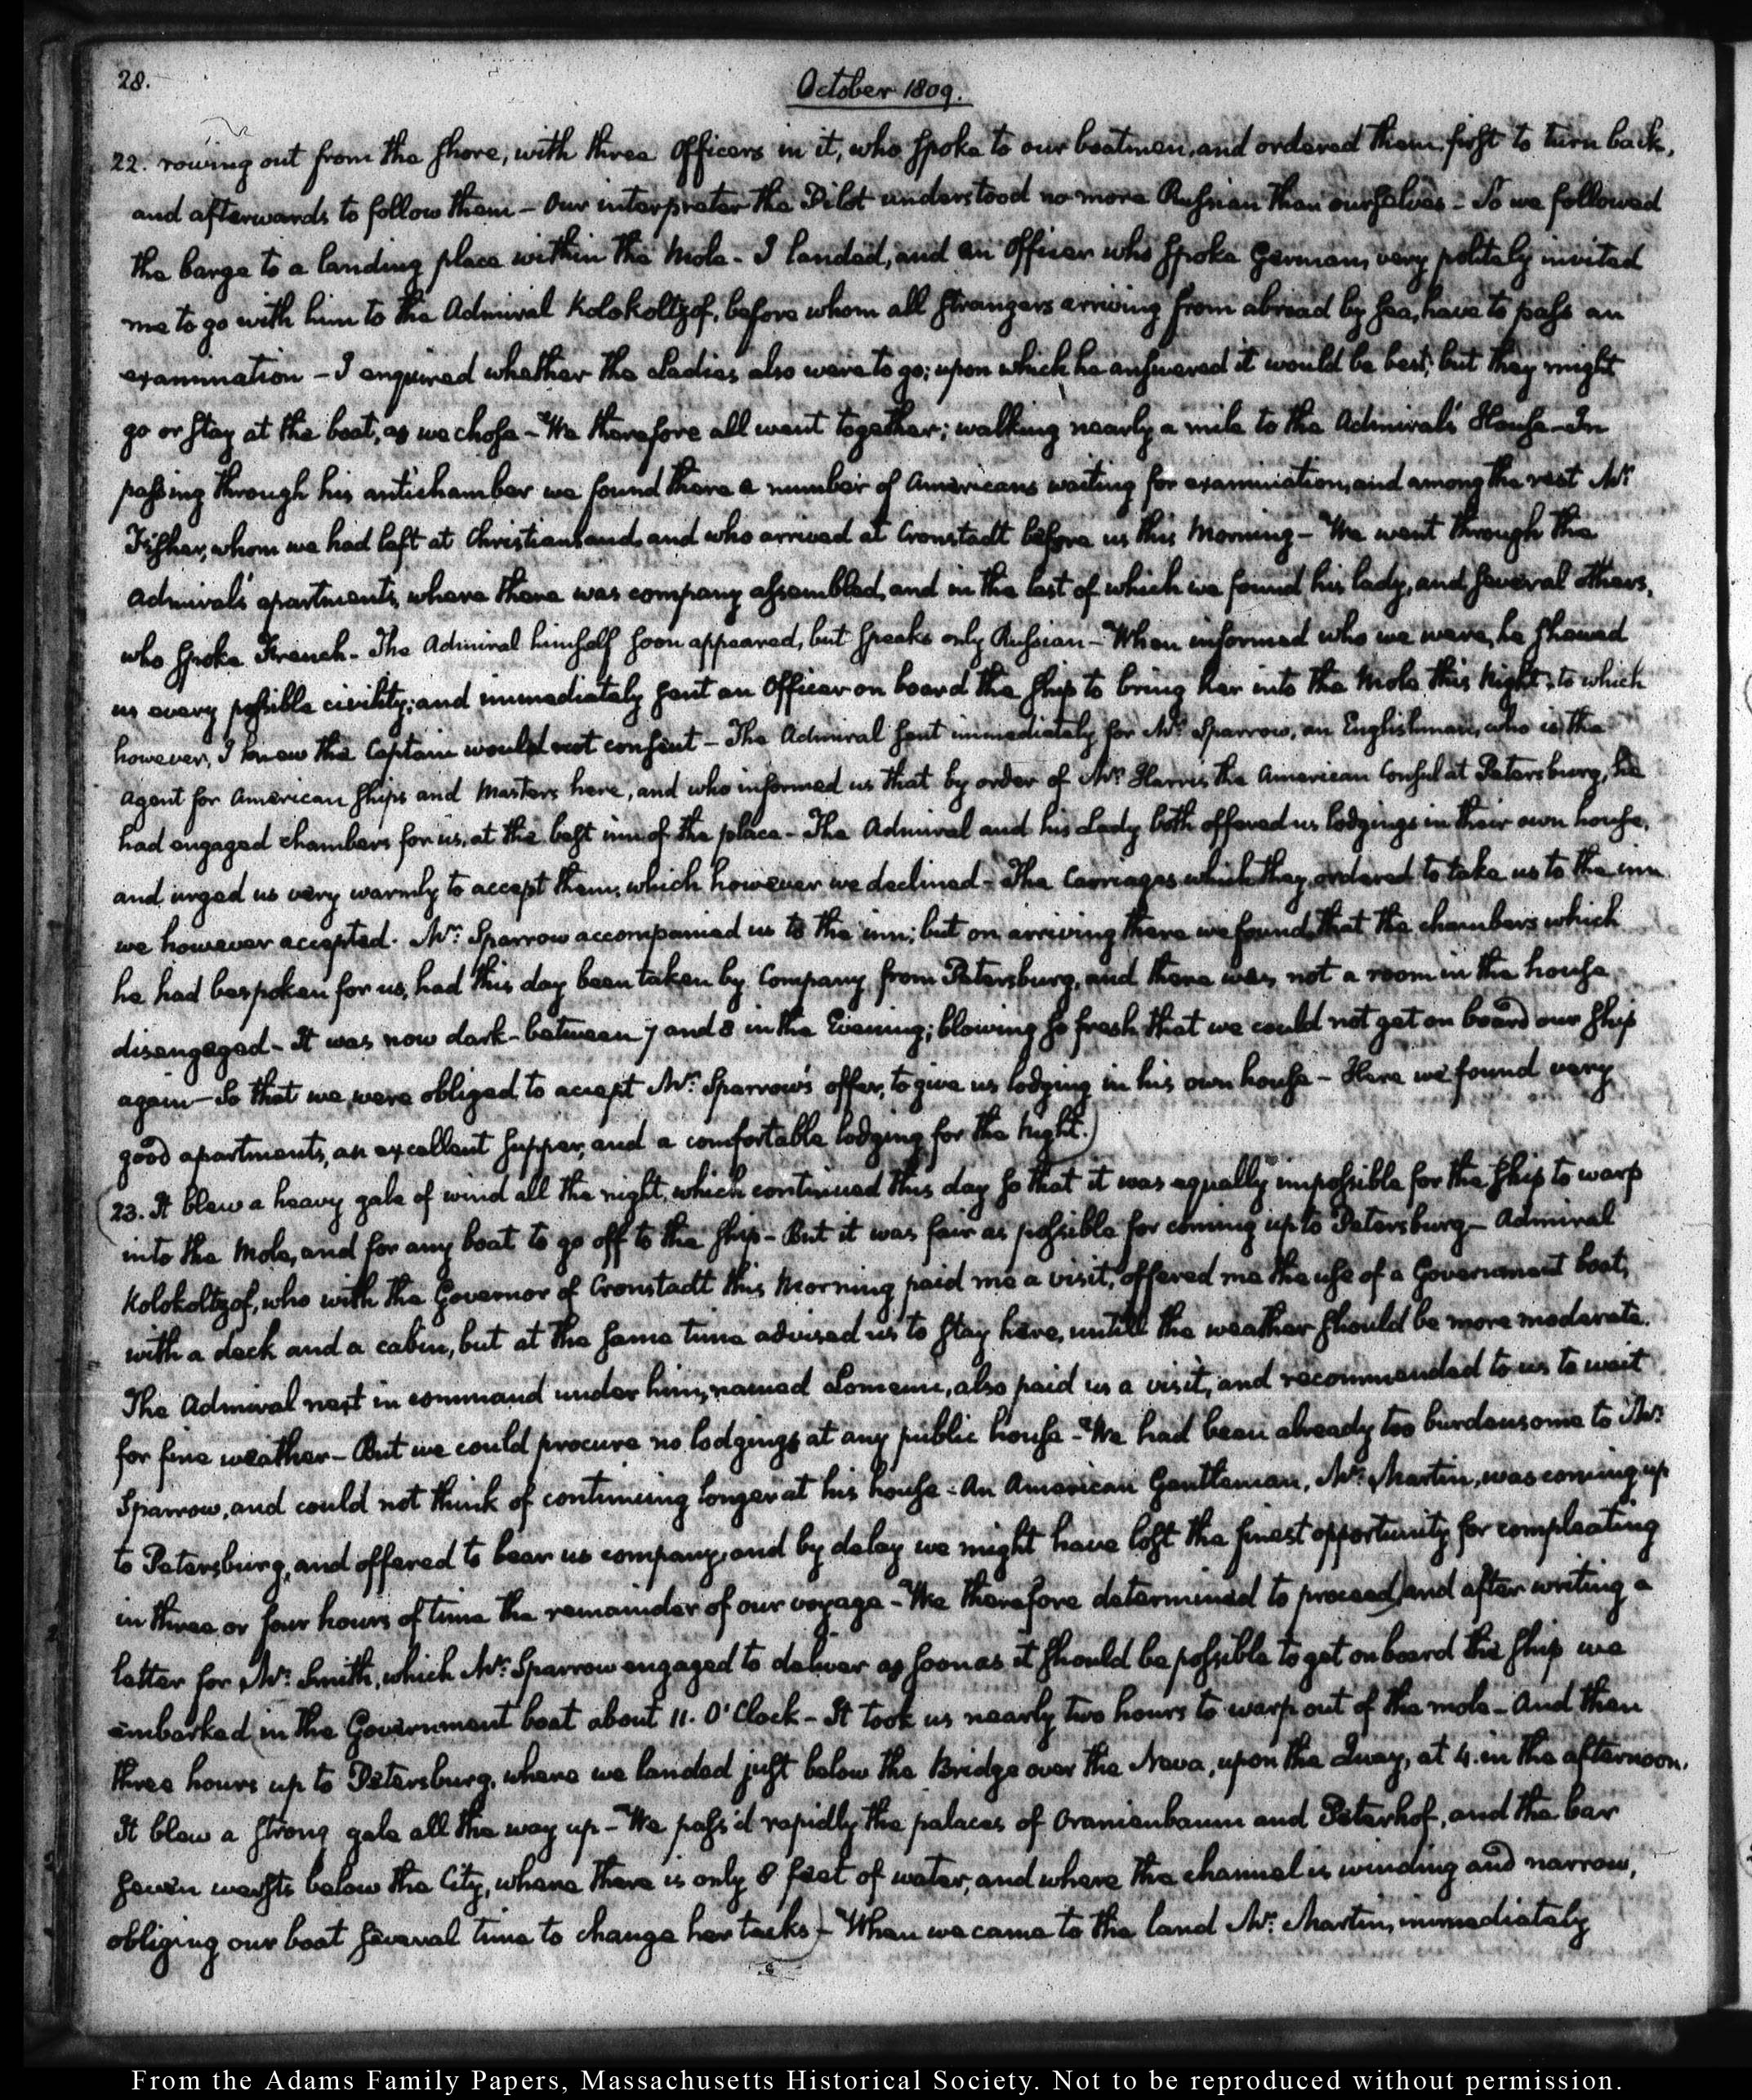 28.
October 1809.
22. rowing out from the shore, with three Officers in it, who spoke to our boatmen, and ordered them, first to turn back,
and afterwards to follow them – Our interpreter the Pilot understood no more Russian than ourselves – So we followed
the barge to a landing place within the Mole – I landed, and an Officer who spoke German, very politely invited
me to go with him to the Admiral Kolokoltzof, before whom all strangers arriving from abroad by sea, have to pass an
examination – I enquired whether the Ladies also were to go; upon which he answered it would be best; but they might
go or stay at the boat, as we chose – We therefore all went together; walking nearly a mile to the Admiral's House – In
passing through his antichamber we found there a number of Americans waiting for examination, and among the rest Mr:
Fisher, whom we had left at Christiansand, and who arrived at Cronstadt before us this Morning – We went through the
Admiral's apartments, where there was company assembled, and in the last of which we found his lady, and several others,
who spoke French – The Admiral himself soon appeared, but speaks only Russian – When informed who we were, he showed
us every possible civility; and immediately sent an Officer on board the ship to bring her into the Mole this Night, to which
however, I knew the Captain would not consent – The Admiral sent immediately for Mr: Sparrow, an Englishman, who is the
Agent for American ships and Masters here, and who informed us that by order of Mr: Harris the American Consul at Petersburg, he
had engaged chambers for us, at the best inn of the place – The Admiral and his Lady both offered us lodgings in their own house,
and urged us very warmly to accept them, which however we declined – The Carriages which they ordered to take us to the inn
we however accepted. Mr: Sparrow accompanied us to the inn; but on arriving there we found that the chambers which
he had bespoken for us, had this day been taken by Company from Petersburg, and there was not a room in the house
disengaged – It was now dark – between 7 and 8 in the Evening; blowing so fresh that we could not get on board our ship
again – So that we were obliged to accept Mr: Sparrow's offer, to give us lodging in his own house – Here we found very
good apartments, an excellent supper, and a comfortable lodging for the Night.)
(23. It blew a heavy gale of wind all the night, which continued this day so that it was equally impossible for the ship to warp
into the Mole, and for any boat to go off to the ship – But it was fair as possible for coming up to Petersburg – Admiral
Kolokoltzof, who with the Governor of Cronstadt this Morning paid me a visit, offered me the use of a Government boat,
with a deck and a cabin, but at the same time advised us to stay here, untill the weather should be more moderate.
The Admiral next in command under him, named Lomenn, also paid us a visit, and recommended to us to wait
for fine weather – But we could procure no lodgings at any public house – We had been already too burdensome to Mr:
Sparrow, and could not think of continuing longer at his house – An American Gentleman, Mr: Martin, was coming up
to Petersburg, and offered to bear us company, and by delay we might have lost the finest opportunity for compleating
in three or four hours of time the remainder of our voyage – We therefore determined to proceed) and after writing a
letter for Mr: Smith, which Mr: Sparrow engaged to deliver as soon as it should be possible to get on board the ship we
embarked (in the Government boat about 11. O'Clock – It took us nearly two hours to warp out of the mole – And then
three hours up to Petersburg, where we landed just below the Bridge over the Neva, upon the Quay, at 4. in the afternoon.
It blew a strong gale all the way up – We pass'd rapidly the palaces of Oranienbaum and Peterhof, and the bar
seven wersts below the City, where there is only 8 feet of water, and where the channel is winding and narrow,
obliging our boat several time to change her tacks) – When we came to the land Mr: Martin, immediately
From the Adams Family Papers, Massachusetts Historical Society. Not to be reproduced without permission.